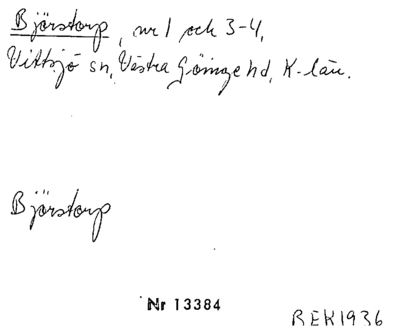 Björstorp, nr 1 och 3-4,
Vittsjö sn, Västra Göinge hd, K-län.
Björstorp
Nr 13384
REK1936